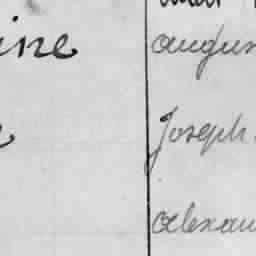 ine
augus
Joseph
alexan